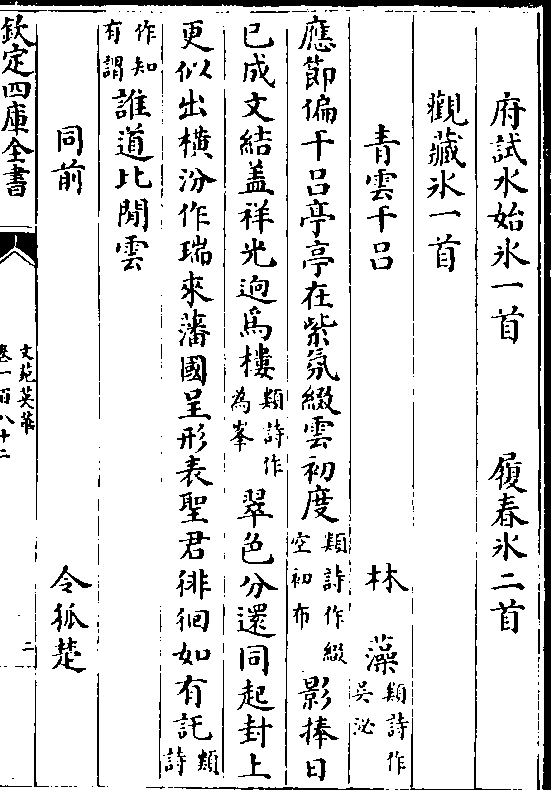 府試水始氷一首 履春氷二首
觀藏氷一首
青雲干呂 林藻類詩作吳泌
應節偏干呂亭亭在紫氛綴雲初度類詩作綴空初布影捧日
已成文結盖祥光逈爲樓類詩作為峯翠色分還同起封上
更似出横汾作瑞來藩國呈形表聖君徘徊如有託類詩
作知有謂誰道比閒雲
同前 令狐楚
欽定四庫全書
文苑英華
卷一百八十二
二